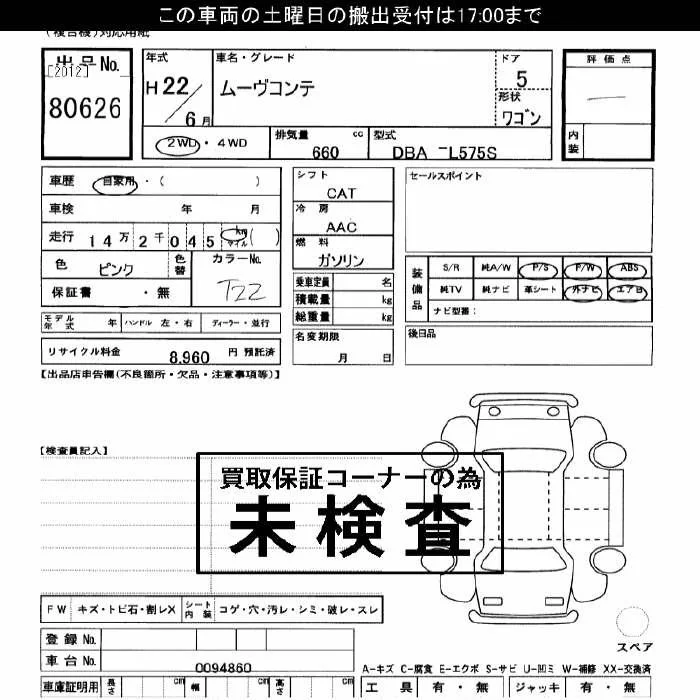 この車両の土曜日の搬出受付は17:00まで
(複合機)対応用紙
出品No.
[2012]
80626
年式
H22/6月
車名・グレード
ムーヴコンテ
ドア
5
形状
ワゴン
評価点
内装
2WD・4WD
排気量 cc
660
型式
DBA -L575S
車歴 自家用・( )
車検 年 月
走行 14万2千045 km マイル ( )
色 ピンク 色替
カラーNo.
T22
保証書 ・無
シフト
CAT
冷房
AAC
燃料
ガソリン
乗車定員 名
積載量 kg
総重量 kg
セールスポイント
装備品
S/R 純A/W P/S P/W ABS
純TV 純ナビ 革シート 外ナビ エアB
ナビ型番:
モデル年式 年 ハンドル 左・右 ディーラー・並行
名変期限
月 日
後日品
リサイクル料金 8,960 円 預託済
【出品店申告欄(不良箇所・欠品・注意事項等)】
【検査員記入】
買取保証コーナーの為
未検査
FW キズ・トビ石・割レX シート内装 コゲ・穴・汚レ・シミ・破レ・スレ
登録No.
車台No. 0094860
スペア
A-キズ C-腐食 E-エクボ S-サビ U-凹ミ W-補修 XX-交換済
車庫証明用 長さ cm 幅 cm 高さ cm
工具 有・無 ジャッキ 有・無